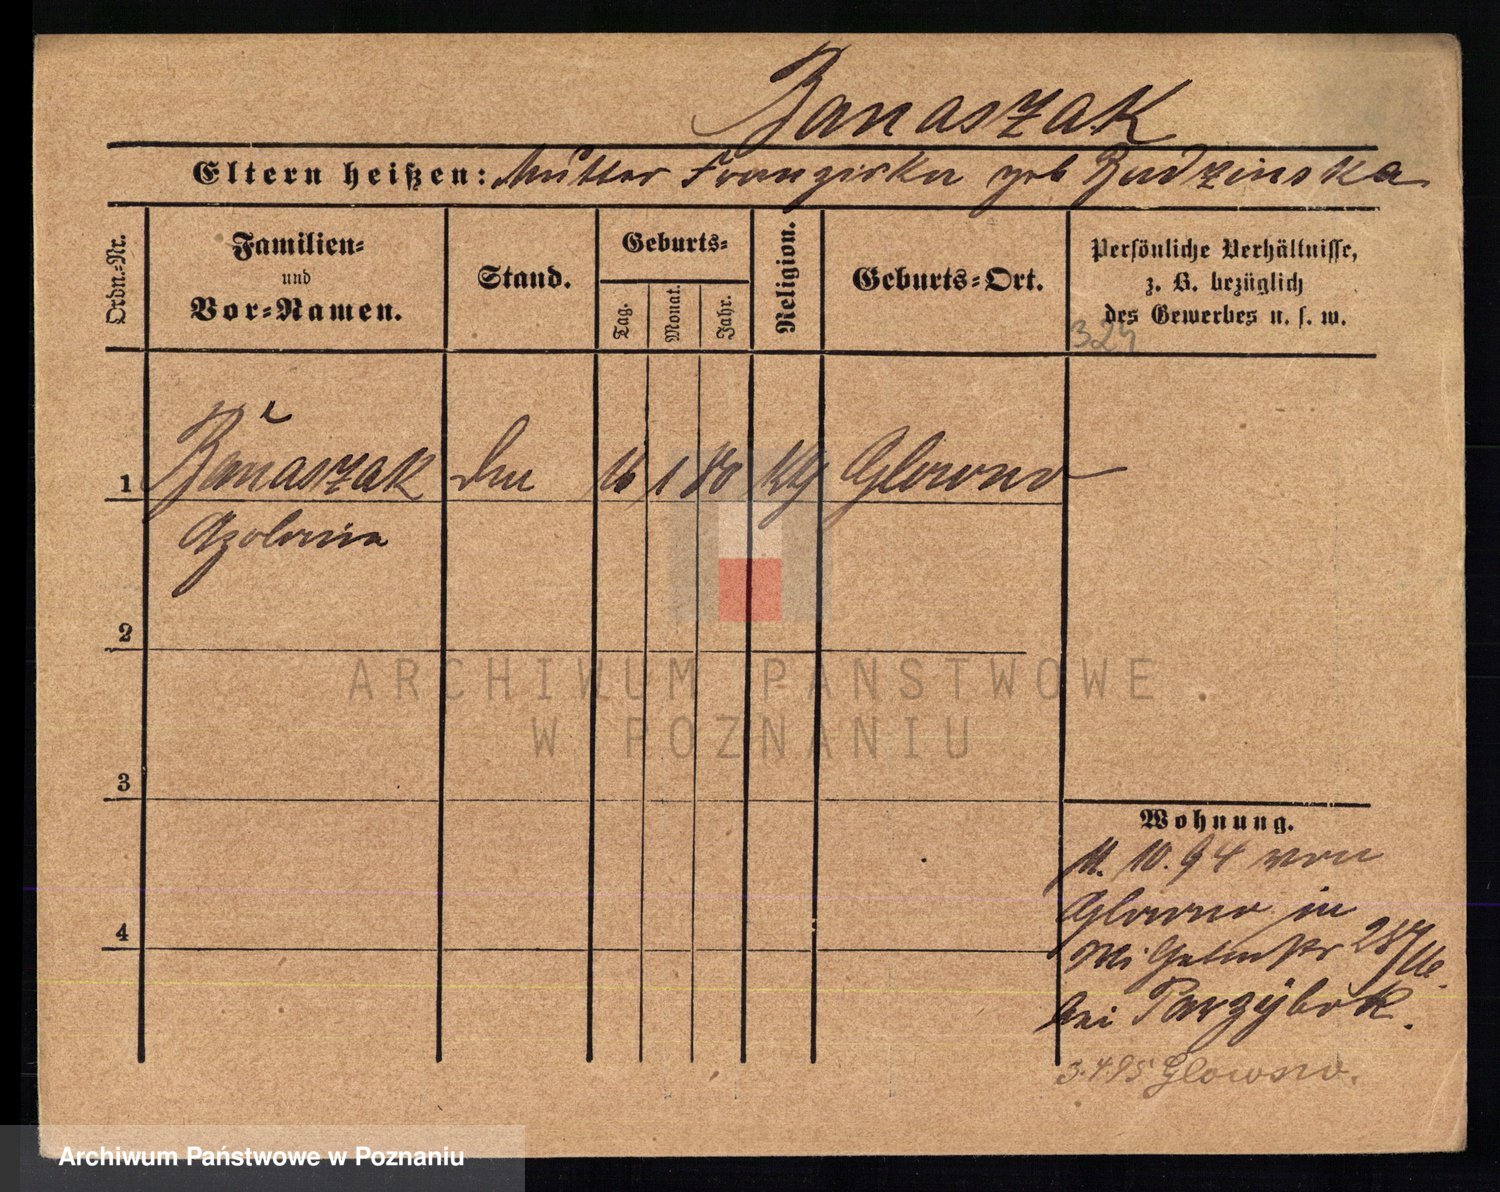 Banaszak
Eltern heißen: Mutter Franziska geb Budzinska
Ordn.-Nr.
Familien-
und
Vor-Namen.
Stand.
Geburts-
Tag.
Monat.
Jahr.
Religion.
Geburts-Ort.
Persönliche Verhältnisse,
z. B. bezüglich
des Gewerbes u. s. w.
324
1 Banaszak 16 1 80 kth Glowno
Apolonia
2
3
4
ARCHIWUM PAŃSTWOWE
W POZNANIU
Wohnung.
11. 10. 94 von
Glowno in
bei Parzybok.
3.4.95 Glowno.
Archiwum Państwowe w Poznaniu